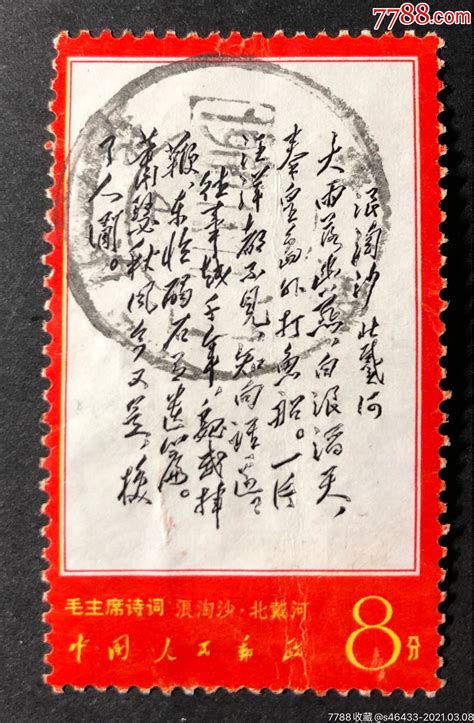 7788.com
浪淘沙 北戴河
大雨落幽燕,白浪滔天,
秦皇島外打魚船。一片
汪洋都不見,知向誰邊
往事越千年,魏武揮
鞭,東臨碣石有遺篇。
蕭瑟秋風今又是,換
了人間。
毛主席诗词 浪淘沙·北戴河
中国人民邮政
8分
7788收藏@s46433-2021.03.08